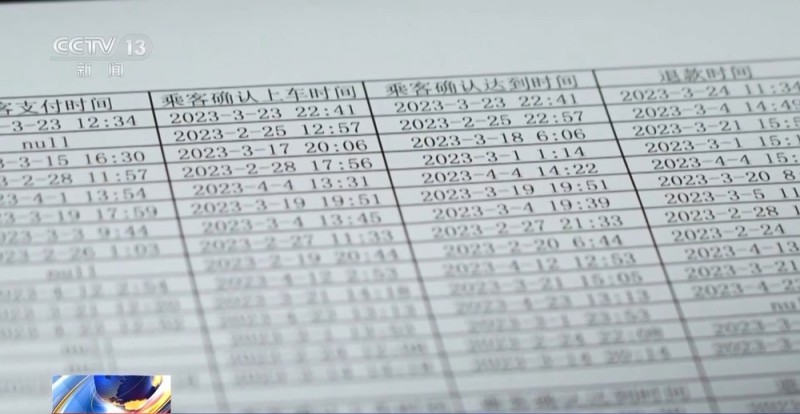 CCTV 13
新闻
客支付时间 乘客确认上车时间 乘客确认达到时间 退款时间
-3-23 12:34 2023-3-23 22:41 2023-3-23 22:41 2023-3-24 11:34
null 2023-2-25 12:57 2023-2-25 22:57 2023-3-4 14:49
-3-15 16:30 2023-3-17 20:06 2023-3-18 6:06 2023-3-21 15:5
-2-28 11:57 2023-2-28 17:56 2023-3-1 1:14 2023-3-1 15:1
-4-1 13:54 2023-4-4 13:31 2023-4-4 14:22 2023-4-4 15:
-3-19 17:59 2023-3-19 19:51 2023-3-19 19:51 2023-3-20 8
-3-3 9:44 2023-3-4 13:45 2023-3-4 19:39 2023-3-5 11
-2-26 1:03 2023-2-27 11:33 2023-2-27 21:33 2023-2-28 1
null 2023-2-19 20:44 2023-2-20 6:44 2023-2-24
2023-4-12 2:53 2023-4-12 12:53 2023-4-13
2023-3-21 15:05 2023-3-21
2023-4-23 13:13 2023-4-2
2023-3-1 23:53
乘客确认达到时间